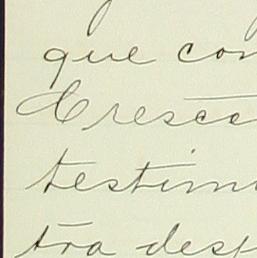 que con
Cresce
testim
tra desp